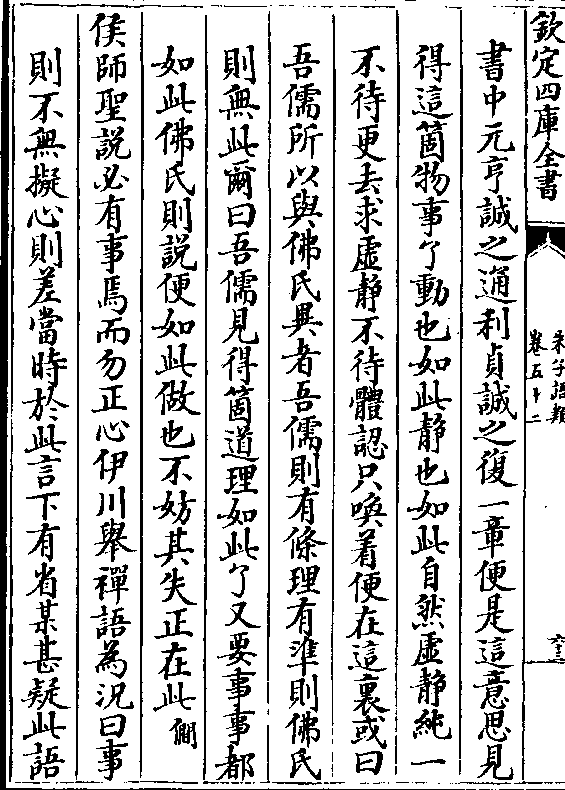 欽定四庫全書
朱子語類
卷五十二
六三
書中元亨誠之通利貞誠之復一章便是這意思見
得這箇物事了動也如此静也如此自然虛静純一
不待更去求虛静不待體認只喚着便在這裏或曰
吾儒所以與佛氏異者吾儒則有條理有準則佛氏
則無此爾曰吾儒見得箇道理如此了又要事事都
如此佛氏則說便如此做也不妨其失正在此 僩
侯師聖說必有事焉而勿正心伊川舉禪語為況曰事
則不無擬心則差當時於此言下有省某甚疑此語